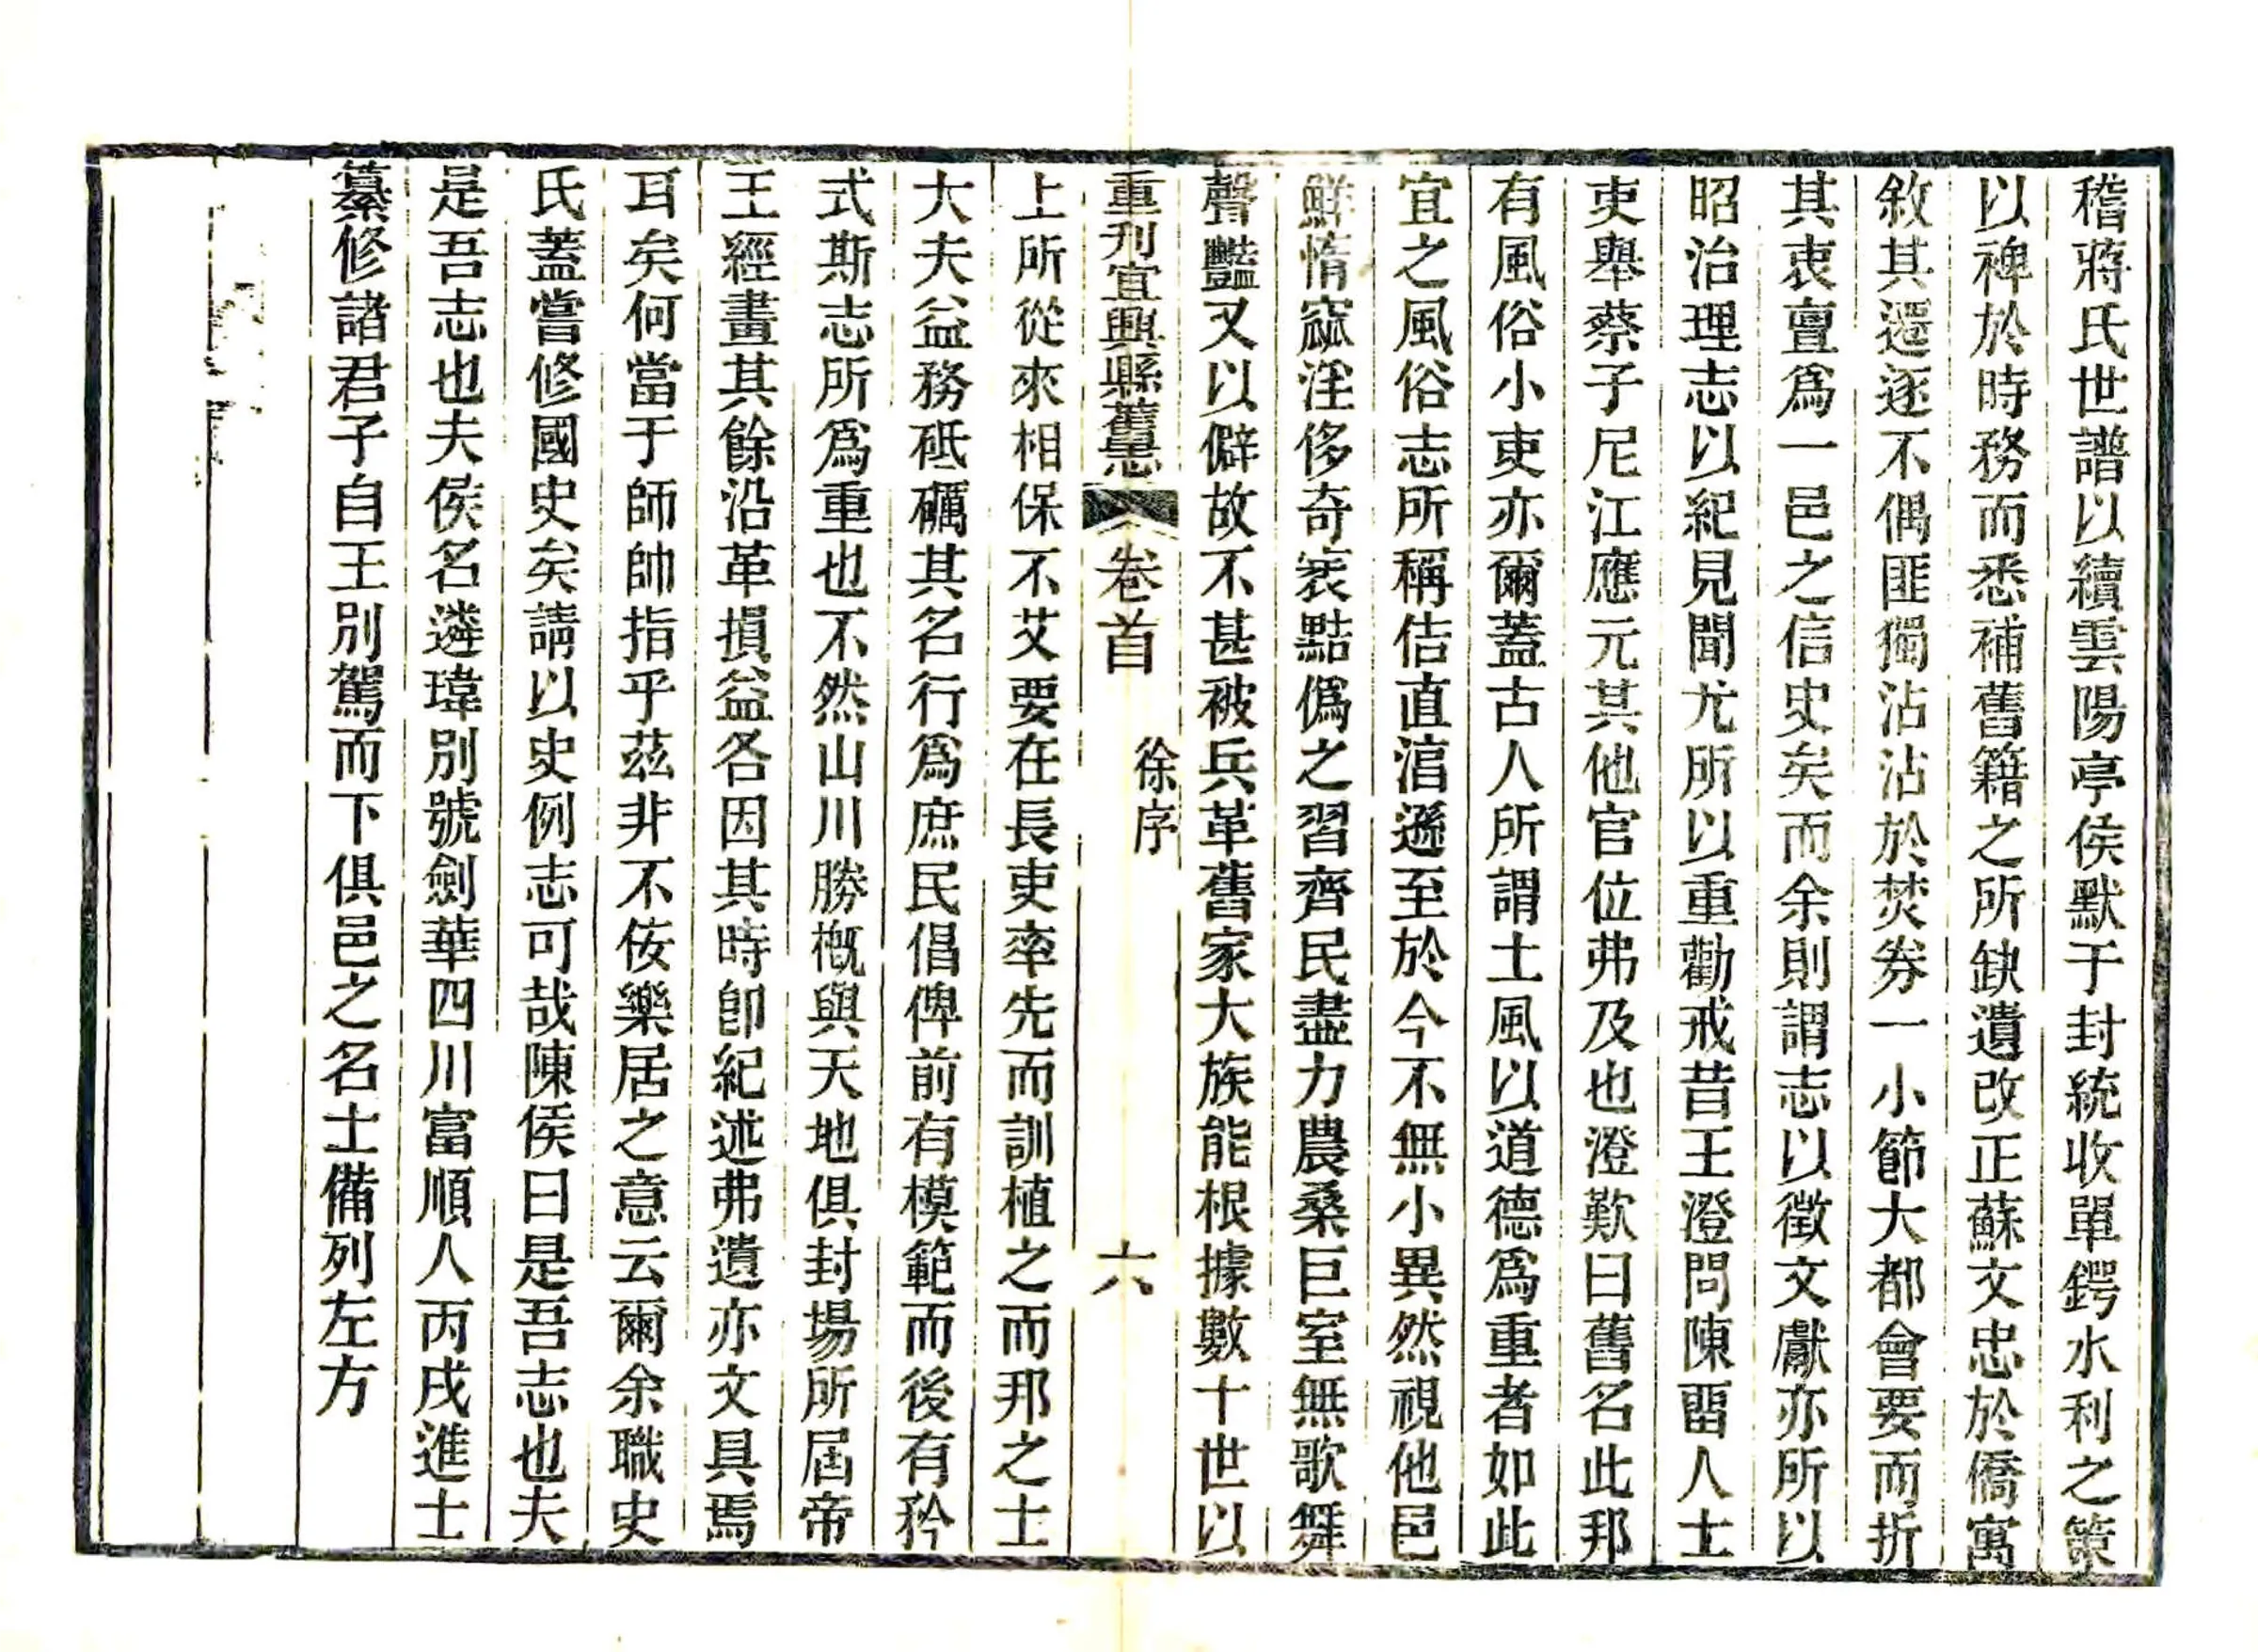 稽蔣氏世譜以續雲陽亭侯默于封統收單鍔水利之策
以裨於時務而悉補舊籍之所缺遺改正蘇文忠於僑寓
敘其還逐不偶匪獨沾沾於焚券一小節大都會要而折
其衷亶爲一邑之信史矣而余則謂志以徵文獻亦所以
昭治理志以紀見聞尤所以重勸戒昔王澄問陳畱人士
吏舉蔡子尼江應元其他官位弗及也澄歎曰舊名此邦
有風俗小吏亦爾蓋古人所謂土風以道德爲重者如此
宜之風俗志所稱佶直淯遜至於今不無小異然視他邑
鮮惰窳淫侈奇衺點僞之習齊民盡力農桑巨室無歌舞
聲豔又以僻故不甚被兵革舊家大族能根據數十世以
重刊宜興縣舊志 卷首 徐序 六
上所從來相保不艾要在長吏率先而訓植之而邦之士
大夫益務砥礪其名行爲庶民倡俾前有模範而後有矜
式斯志所爲重也不然山川勝概與天地俱封場所屆帝
王經畫其餘沿革損益各因其時卽紀述弗遺亦文具焉
耳矣何當于師師帥指乎茲非不佞樂居之意云爾余職史
氏蓋嘗修國史矣請以史例志可哉陳侯曰是吾志也夫
是吾志也夫侯名遴瑋別號劍華四川富順人丙戌進士
纂修諸君子自王別駕而下俱邑之名士備列左方